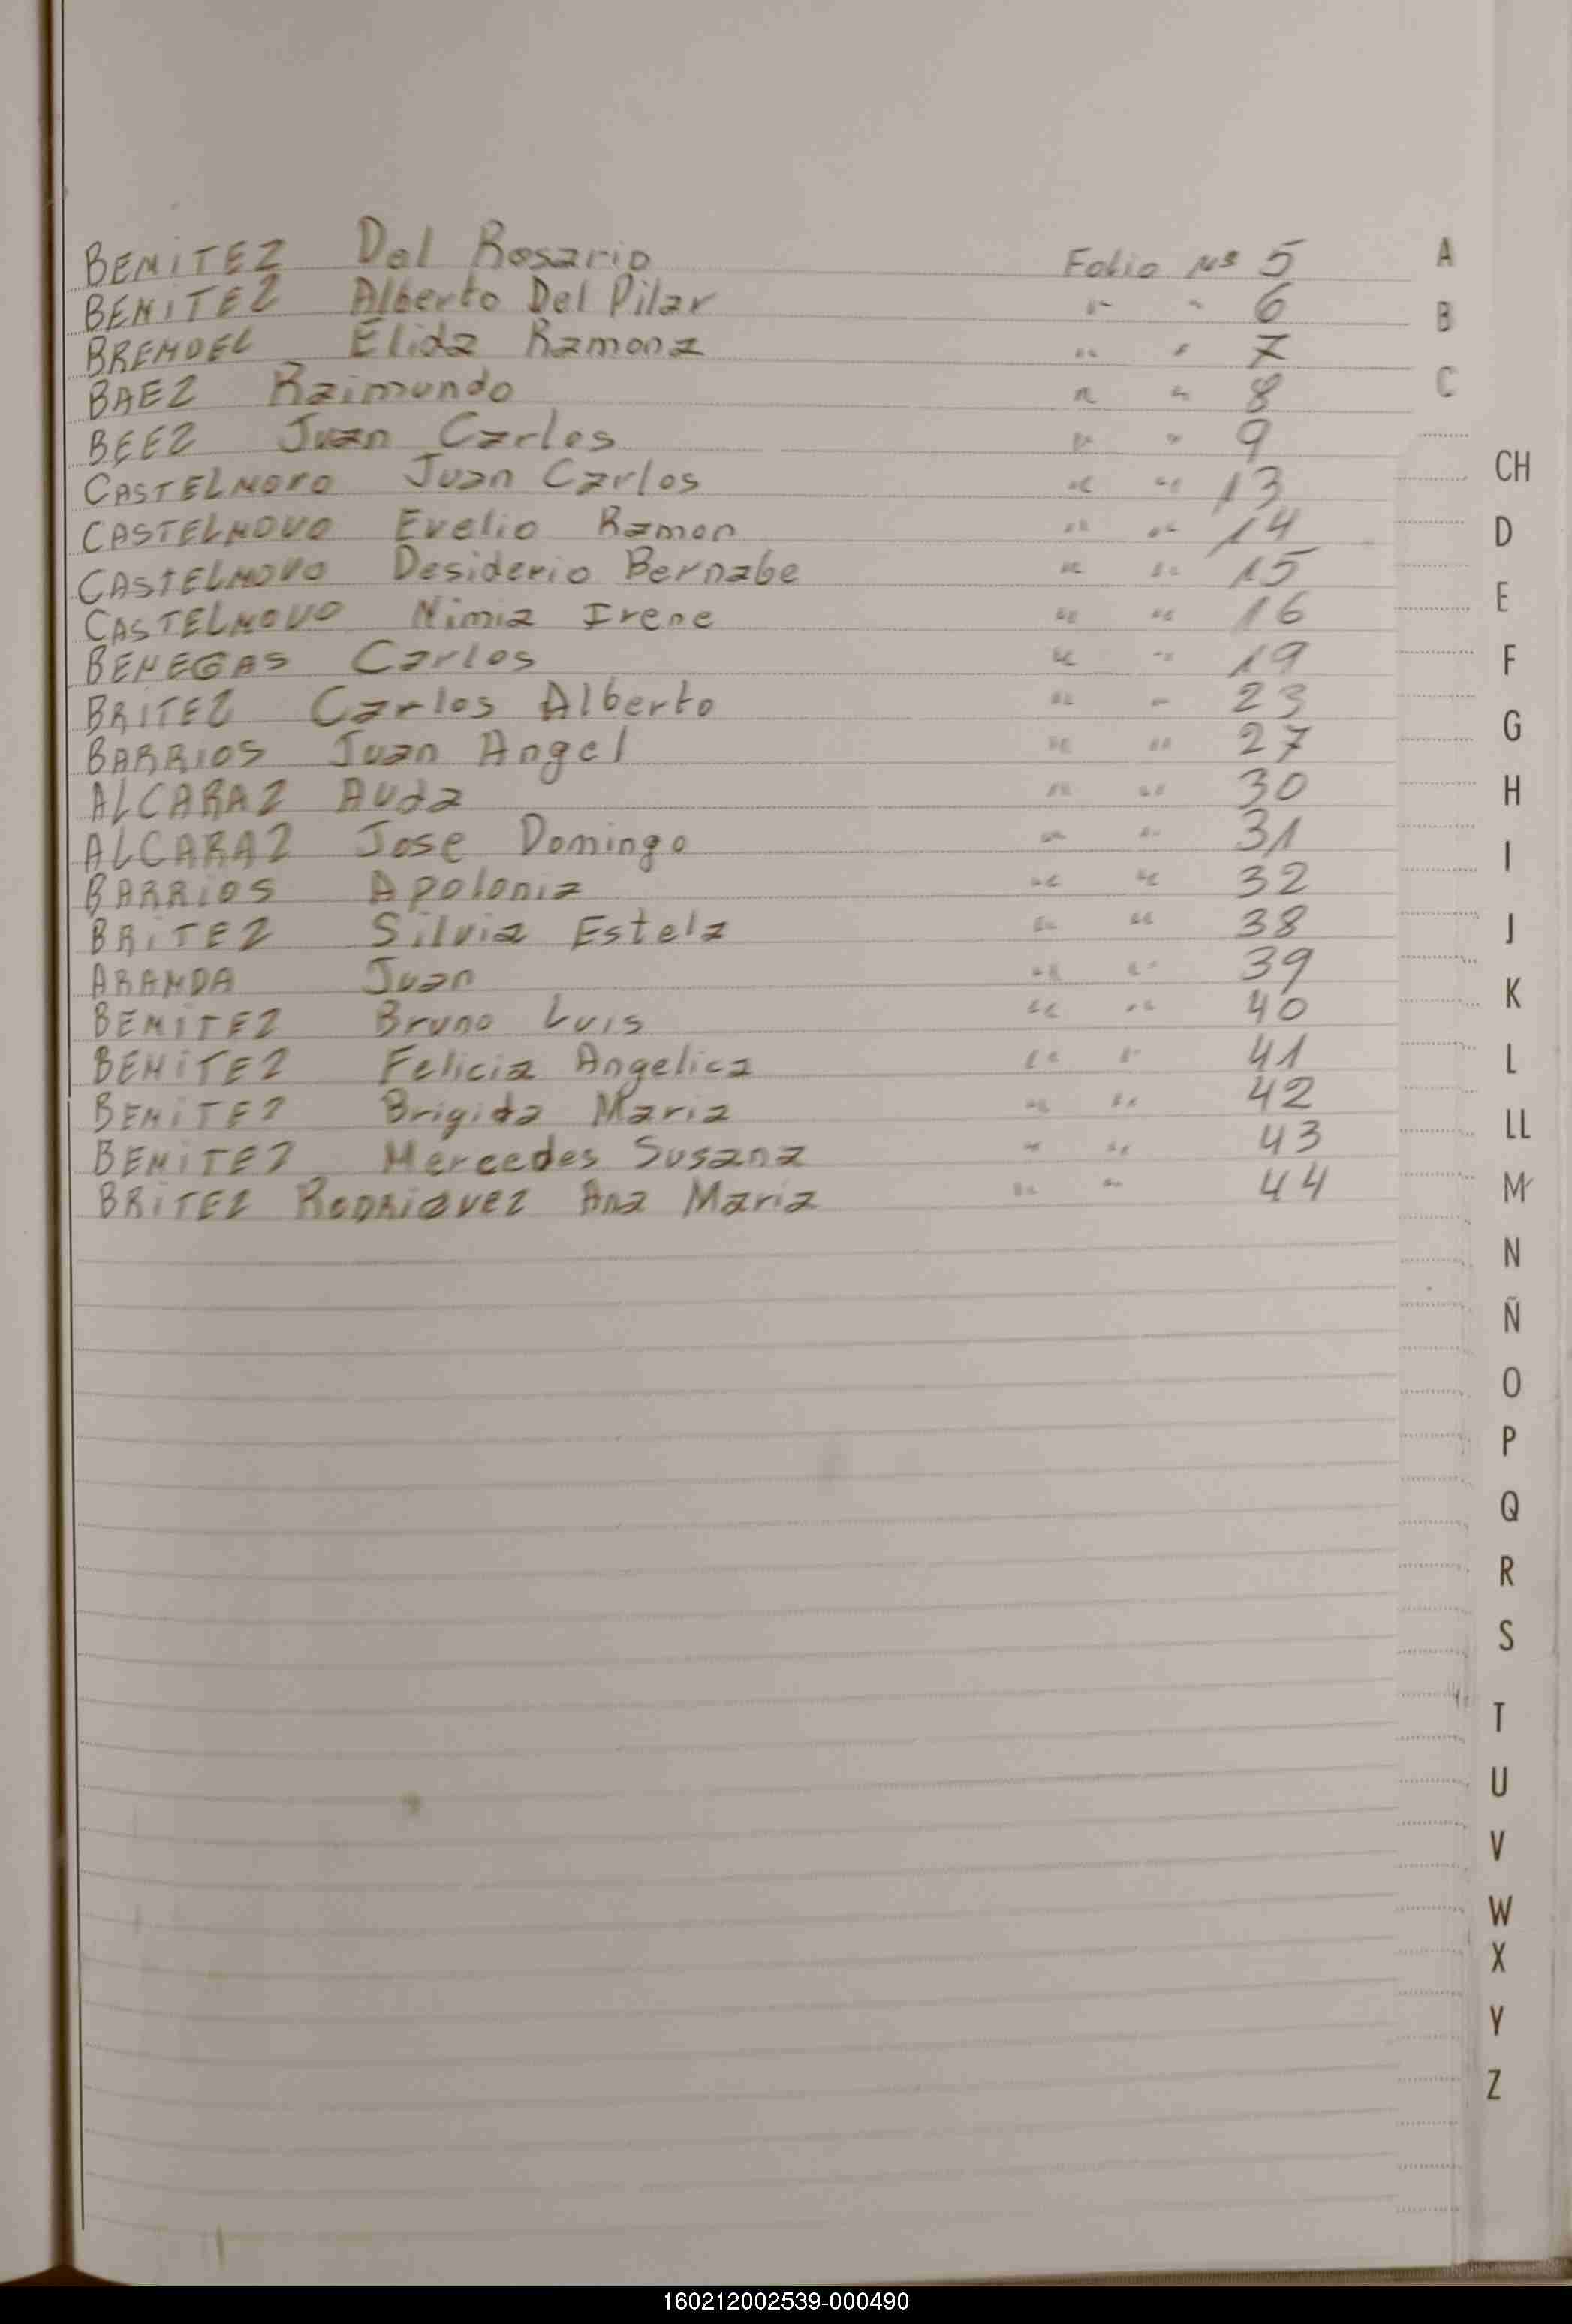 BENITEZ Del Rosario Folio Nº 5
BENITEZ Alberto Del Pilar " " 6
BRENDEL Elida Ramona " " 7
BAEZ Raimundo " " 8
BEEZ Juan Carlos " " 9
CASTELNOVO Juan Carlos " " 13
CASTELNOVO Evelio Ramon " " 14
CASTELNOVO Desiderio Bernabe " " 15
CASTELNOVO Nimia Irene " " 16
BENEGAS Carlos " " 19
BRITEZ Carlos Alberto " " 23
BARRIOS Juan Angel " " 27
ALCARAZ Auda " " 30
ALCARAZ Jose Domingo " " 31
BARRIOS Apolonia " " 32
BRITEZ Silvia Estela " " 38
ARANDA Juan " " 39
BENITEZ Bruno Luis " " 40
BENITEZ Felicia Angelica " " 41
BENITEZ Brigida Maria " " 42
BENITEZ Mercedes Susana " " 43
BRITEZ RODRIGUEZ Ana Maria " " 44
A
B
C
CH
D
E
F
G
H
I
J
K
L
LL
M
N
Ñ
O
P
Q
R
S
T
U
V
W
X
Y
Z
160212002539-000490